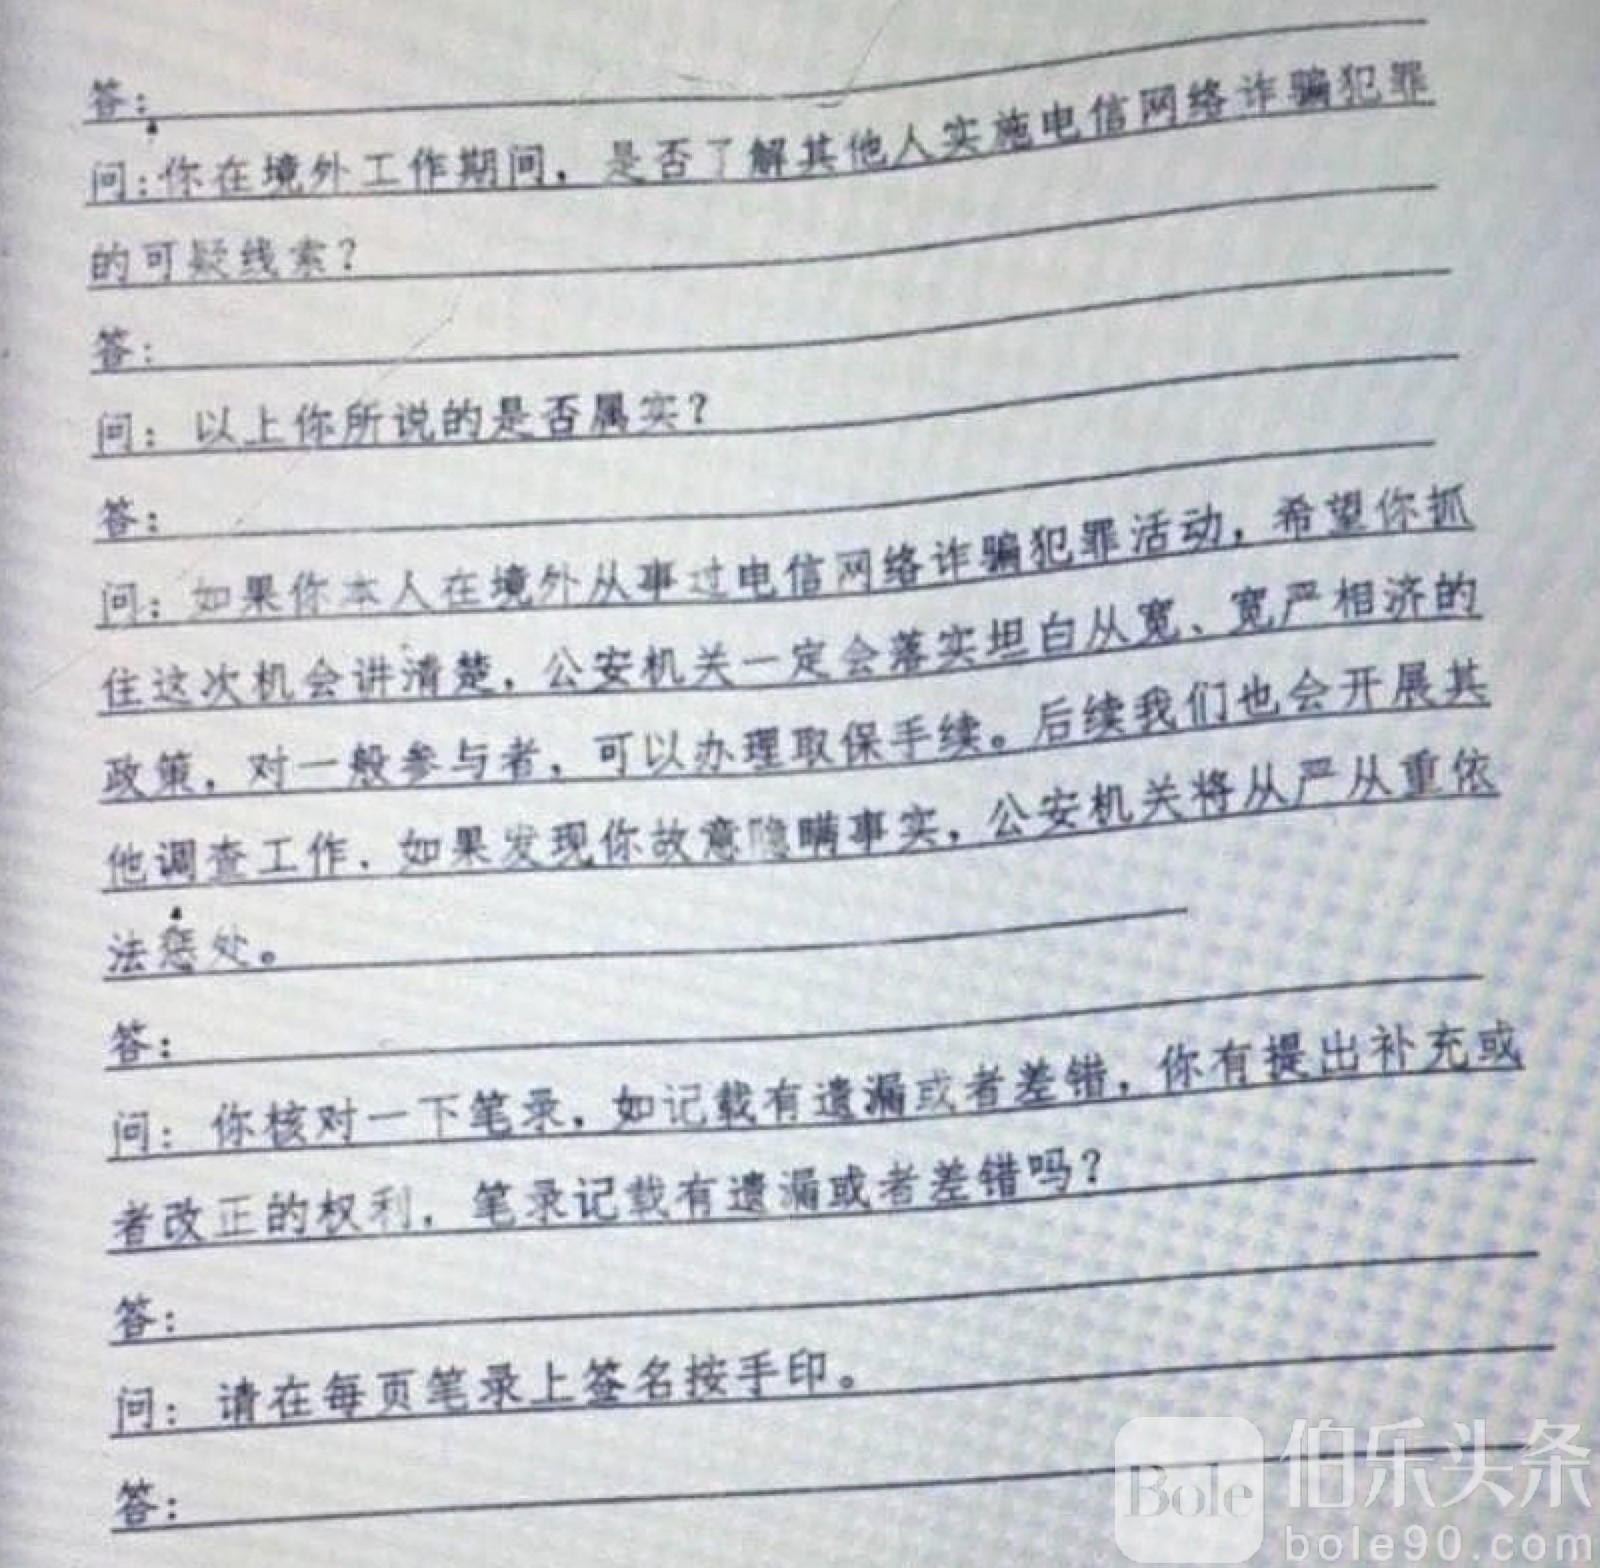 答：
问：你在境外工作期间，是否了解其他人实施电信网络诈骗犯罪
的可疑线索？
答：
问：以上你所说的是否属实？
答：
问：如果你本人在境外从事过电信网络诈骗犯罪活动，希望你抓
住这次机会讲清楚，公安机关一定会落实坦白从宽、宽严相济的
政策，对一般参与者，可以办理取保手续。后续我们也会开展其
他调查工作，如果发现你故意隐瞒事实，公安机关将从严从重依
法惩处。
答：
问：你核对一下笔录，如记载有遗漏或者差错，你有提出补充或
者改正的权利，笔录记载有遗漏或者差错吗？
答：
问：请在每页笔录上签名按手印。
答：
Bole 伯乐头条
bole90.com